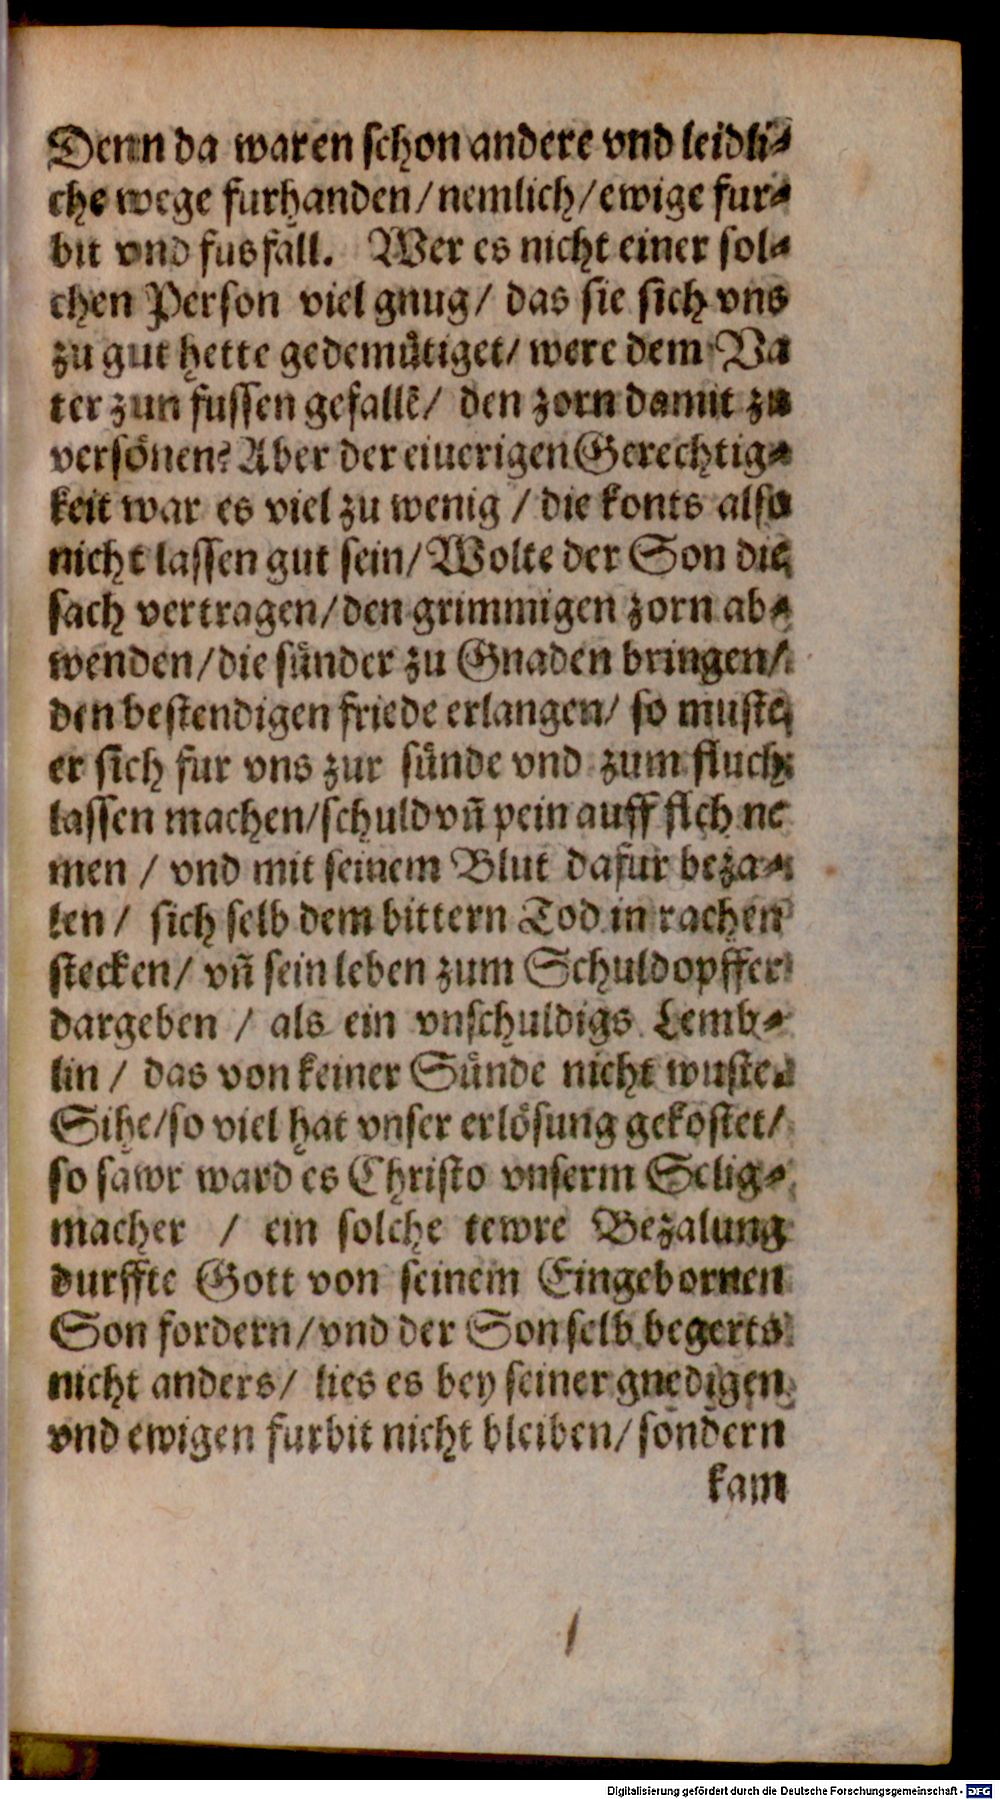 Denn da waren schon andere vnd leidli-
che wege furhanden/nemlich/ewige fur-
bit vnd fusfall. Wer es nicht einer sol-
chen Person viel gnug/ das sie sich vns
zu gut hette gedemuͤtiget/ were dem Va
ter zun fussen gefallē/ den zorn damit zu
versoͤnen? Aber der eiuerigen Gerechtig-
keit war es viel zu wenig / die konts also
nicht lassen gut sein/ Wolte der Son die
sach vertragen/den grimmigen zorn ab-
wenden/die suͤnder zu Gnaden bringen/
den bestendigen friede erlangen/ so muste
er sich fur vns zur suͤnde vnd zum fluch
lassen machen/schuld vn̄ pein auff sich ne
men / vnd mit seinem Blut dafur beza-
len / sich selb dem bittern Tod in rachen
stecken/ vn̄ sein leben zum Schuldopffer
dargeben / als ein vnschuldigs Lemb-
lin / das von keiner Suͤnde nicht wuste.
Sihe/so viel hat vnser erloͤsung gekostet/
so sawr ward es Christo vnserm Selig-
macher / ein solche tewre Bezalung
durffte Gott von seinem Eingebornen
Son fordern/vnd der Son selb begerts
nicht anders/ lies es bey seiner gnedigen
vnd ewigen furbit nicht bleiben/ sondern
kam
Digitalisierung gefördert durch die Deutsche Forschungsgemeinschaft - DFG